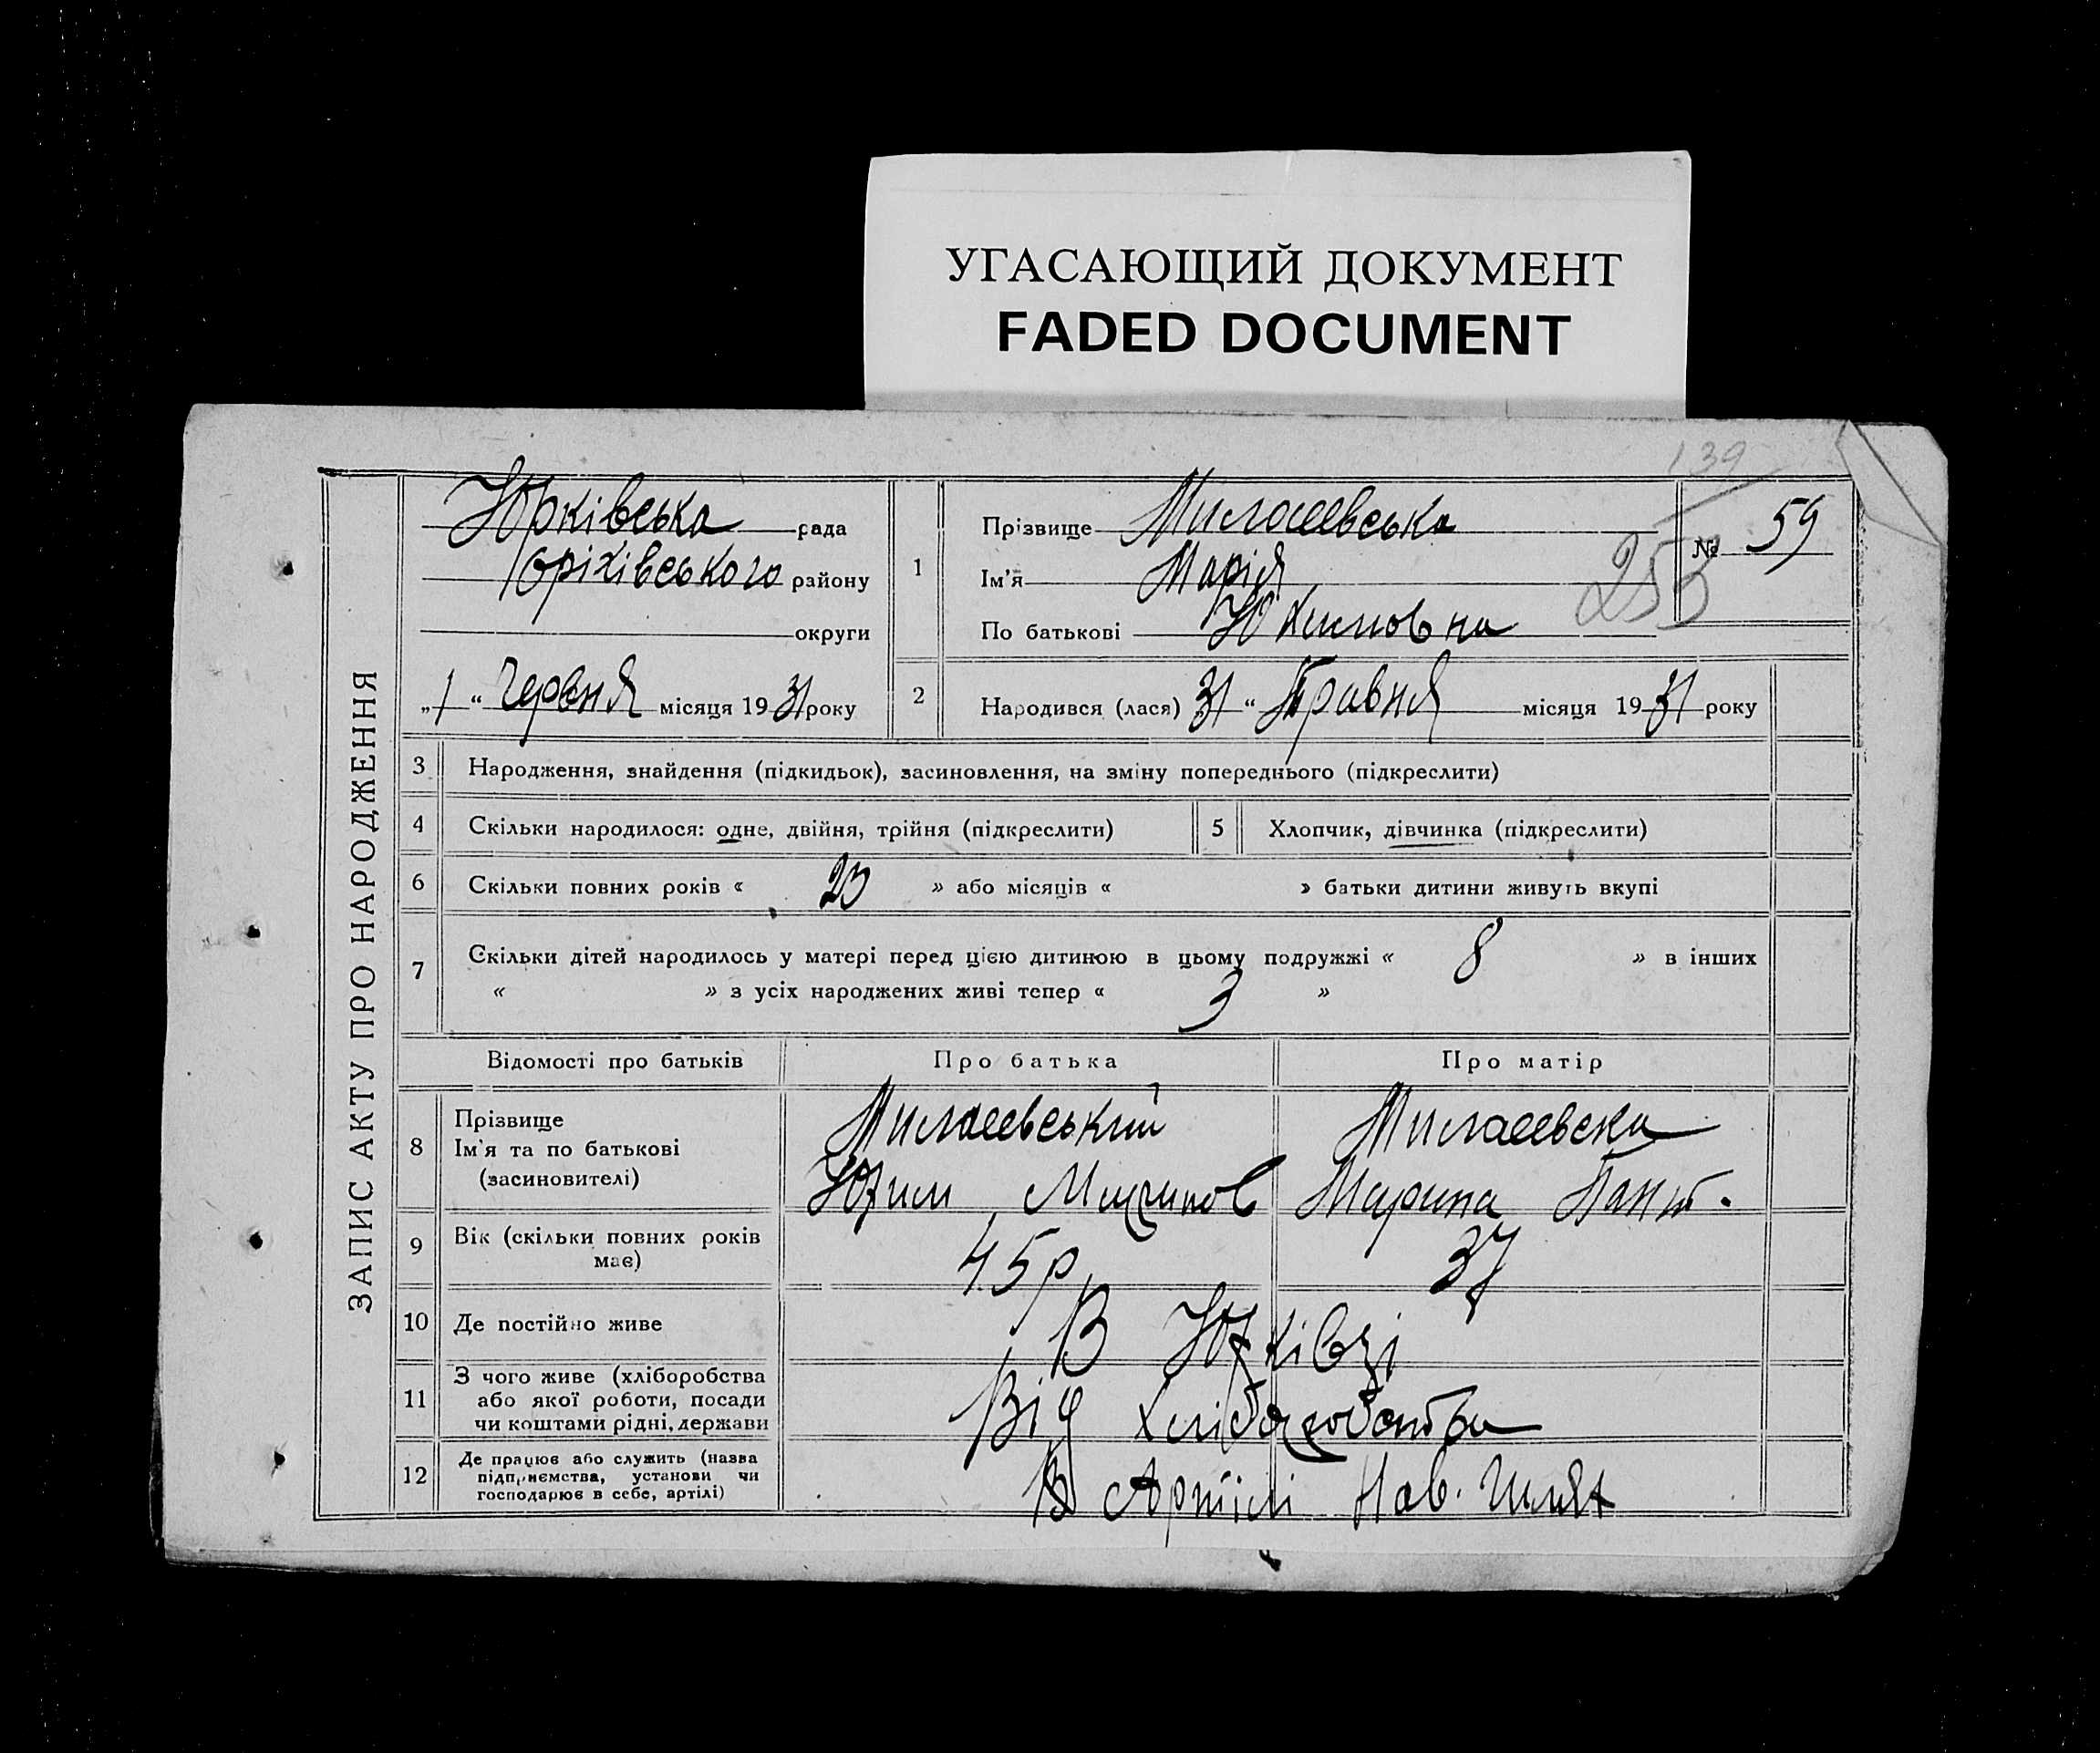 УГАСАЮЩИЙ ДОКУМЕНТ
FADED DOCUMENT
139
ЗАПИС АКТУ ПРО НАРОДЖЕННЯ
Юрківська рада
Оріхівського району
округи
„1“ Червня місяця 1931 року
1
Прізвище Милашевська
Ім'я Марія
По батькові Юхимовна
№ 59
253
2
Народився (лася) 31 “ Травня місяця 1931 року
3 Народження, знайдення (підкидьок), засиновлення, на зміну попереднього (підкреслити)
4 Скільки народилося: одне, двійня, трійня (підкреслити)
5 Хлопчик, дівчинка (підкреслити)
6 Скільки повних років « 23 » або місяців « » батьки дитини живуть вкупі
7 Скільки дітей народилось у матері перед цією дитиною в цьому подружжі « 8 » в інших
« » з усіх народжених живі тепер « 3 »
Відомості про батьків Про батька Про матір
8 Прізвище
Ім'я та по батькові
(засиновителі)
Милашевський
Юхим
Милашевска
Марина Пант.
9 Вік (скільки повних років
має)
45 р 37
10 Де постійно живе В Юрківці
11 З чого живе (хліборобства
або якої роботи, посади
чи коштами рідні, держави
Від хліборобства
12 Де працює або служить (назва
підприємства, установи чи
господарює в себе, артілі)
В Артілі Нов. Шлях